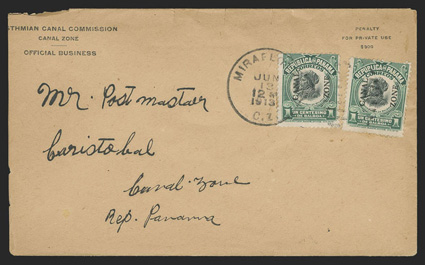 THMIAN CANAL COMMISSION
CANAL ZONE
OFFICIAL BUSINESS
PENALTY
FOR PRIVATE USE
$300
MIRAFL
JUN
12 M
1913
C.Z.
REPUBLICA DE PANAMA
CORREOS
CANAL ZONE
1 UN CENTESIMO 1
DE BALBOA
REPUBLICA DE PANAMA
CORREOS
CANAL ZONE
1 UN CENTESIMO 1
DE BALBOA
Mr. Postmastar
Caristobal
Canal Zone
Rep. Panama